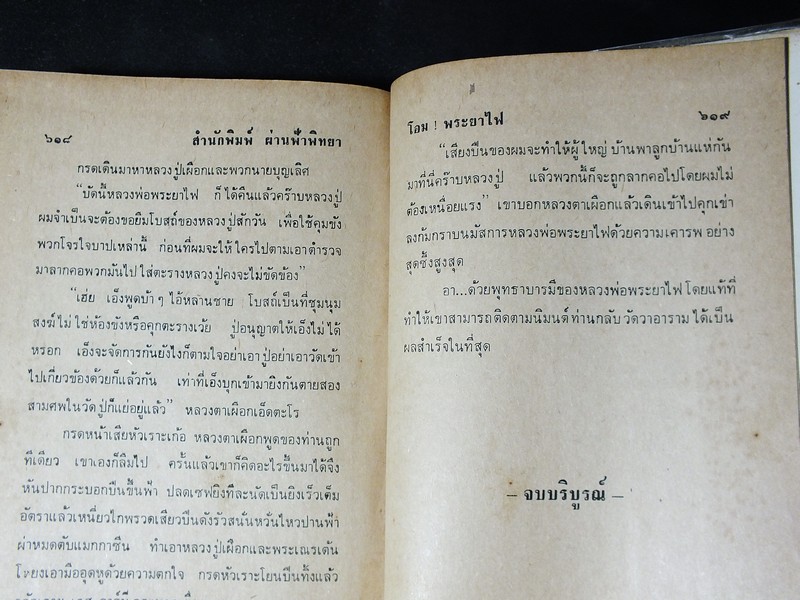 ๖๑๘ สำนักพิมพ์ ผ่านฟ้าพิทยา
กรดเดินมาหาหลวงปู่เผือกและพวกนายบุญเลิศ
“บัดนี้หลวงพ่อพระยาไฟ ก็ได้คืนแล้วคร๊าบหลวงปู่
ผมจำเป็นจะต้องขอยืมโบสถ์ของหลวงปู่สักวัน เพื่อใช้คุมขัง
พวกโจรใจบาปเหล่านี้ ก่อนที่ผมจะให้ใครไปตามเอาตำรวจ
มาลากคอพวกมันไปใส่ตะรางหลวงปู่คงจะไม่ขัดข้อง”
“เฮ่ย เอ็งพูดบ้า ๆ ไอ้หล่านชาย โบสถ์เป็นที่ชุมนุม
สงฆ์ไม่ใช่ห้องขังหรือคุกตะรางเว้ย ปู่อนุญาตให้เอ็งไม่ได้
หรอก เอ็งจะจัดการกันยังไงก็ตามใจอย่าเอาปู่อย่าเอาวัดเข้า
ไปเกี่ยวข้องด้วยก็แล้วกัน เท่าที่เอ็งบุกเข้ามายิงกันตายสอง
สามศพในวัดปู่ก็แย่อยู่แล้ว” หลวงตาเผือกเอ็ดตะโร
กรดหน้าเสียหัวเราะเก้อ หลวงตาเผือกพูดของท่านถูก
ทีเดียว เขาเองก็ลืมไป ครั้นแล้วเขาก็คิดอะไรขึ้นมาได้จึง
หันปากกระบอกปืนขึ้นฟ้า ปลดเซฟยิงทีละนัดเป็นยิงเร็วเต็ม
อัตราแล้วเหนี่ยวไกพรวดเสียวปืนดังรัวสนั่นหวั่นไหวปานฟ้า
ผ่าหมดตับแมกกาซีน ทำเอาหลวงปู่เผือกและพระเณรเต้น
โหยงเอามืออุดหูด้วยความตกใจ กรดหัวเราะโยนปืนทิ้งแล้ว
โอม ! พระยาไฟ ๖๑๙
“เสียงปืนของผมจะทำให้ผู้ใหญ่บ้านพาลูกบ้านแห่กัน
มาที่นี่คร๊าบหลวงปู่ แล้วพวกนี้ก็จะถูกลากคอไปโดยผมไม่
ต้องเหนื่อยแรง” เขาบอกหลวงตาเผือกแล้วเดินเข้าไปคุกเข่า
ลงก้มกราบนมัสการหลวงพ่อพระยาไฟด้วยความเคารพ อย่าง
สุดซึ้งสูงสุด
อา...ด้วยพุทธาบารมีของหลวงพ่อพระยาไฟโดยแท้ที่
ทำให้เขาสามารถติดตามนิมนต์ท่านกลับวัดวาอารามได้เป็น
ผลสำเร็จในที่สุด
– จบบริบูรณ์ –